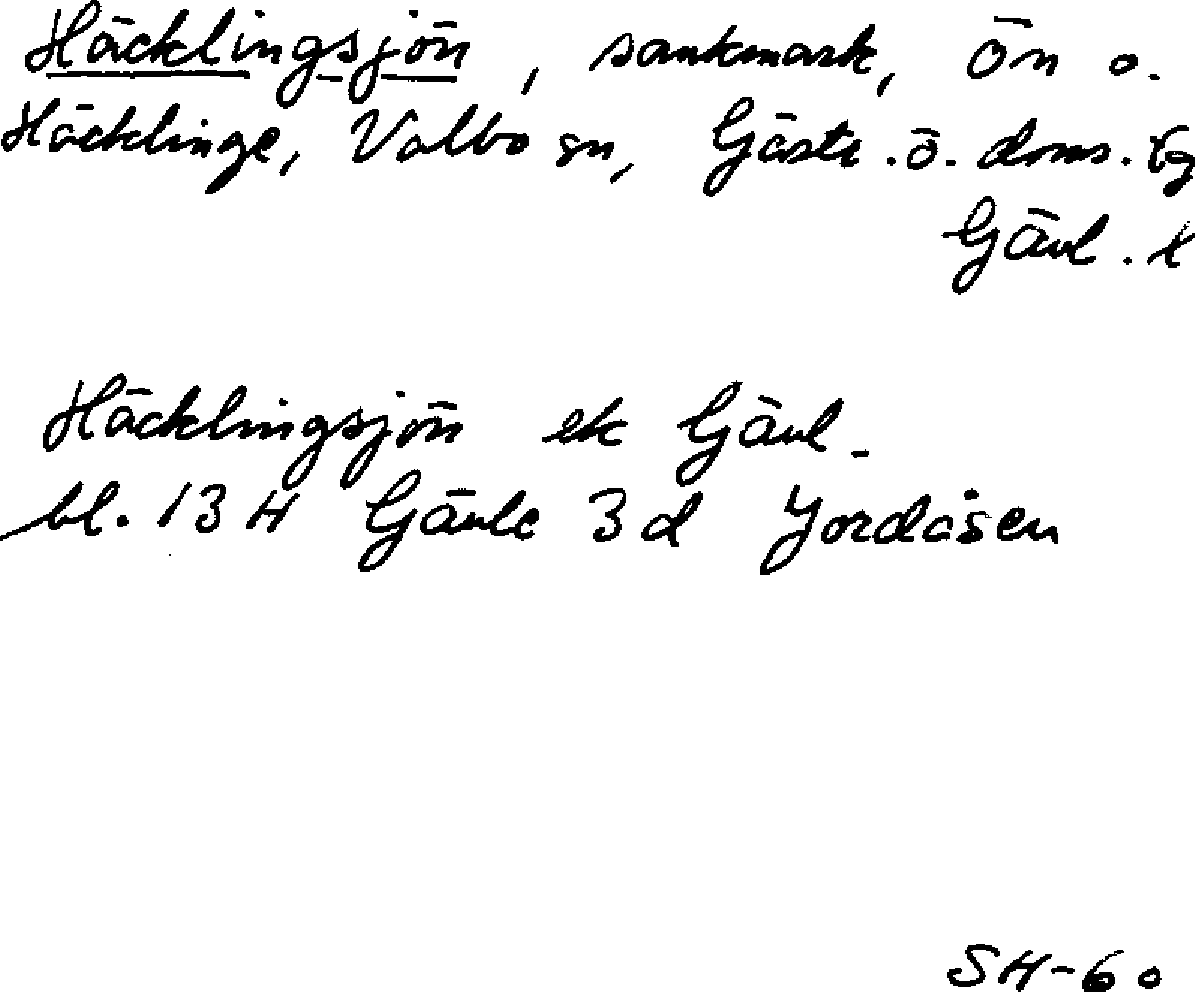 Häcklingsjön, sankmark, Ön o.
Häcklinge, Valbo sn, Gästr. ö. doms. tg
Gävl. l
Häcklingsjön ek Gävl.
bl. 13 H Gävle 3d Jordåsen
SH-60